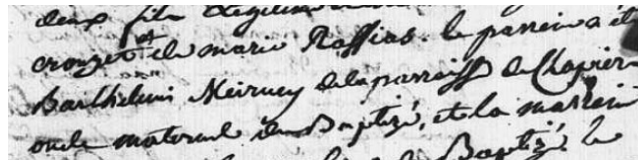 deux fils legitime
crouzet et de marie Raffias. le parrein a été
Barthelemi Meirueÿ de la parroisse de
oncle maternel du Baptizé, et la marrein
Baptizé le